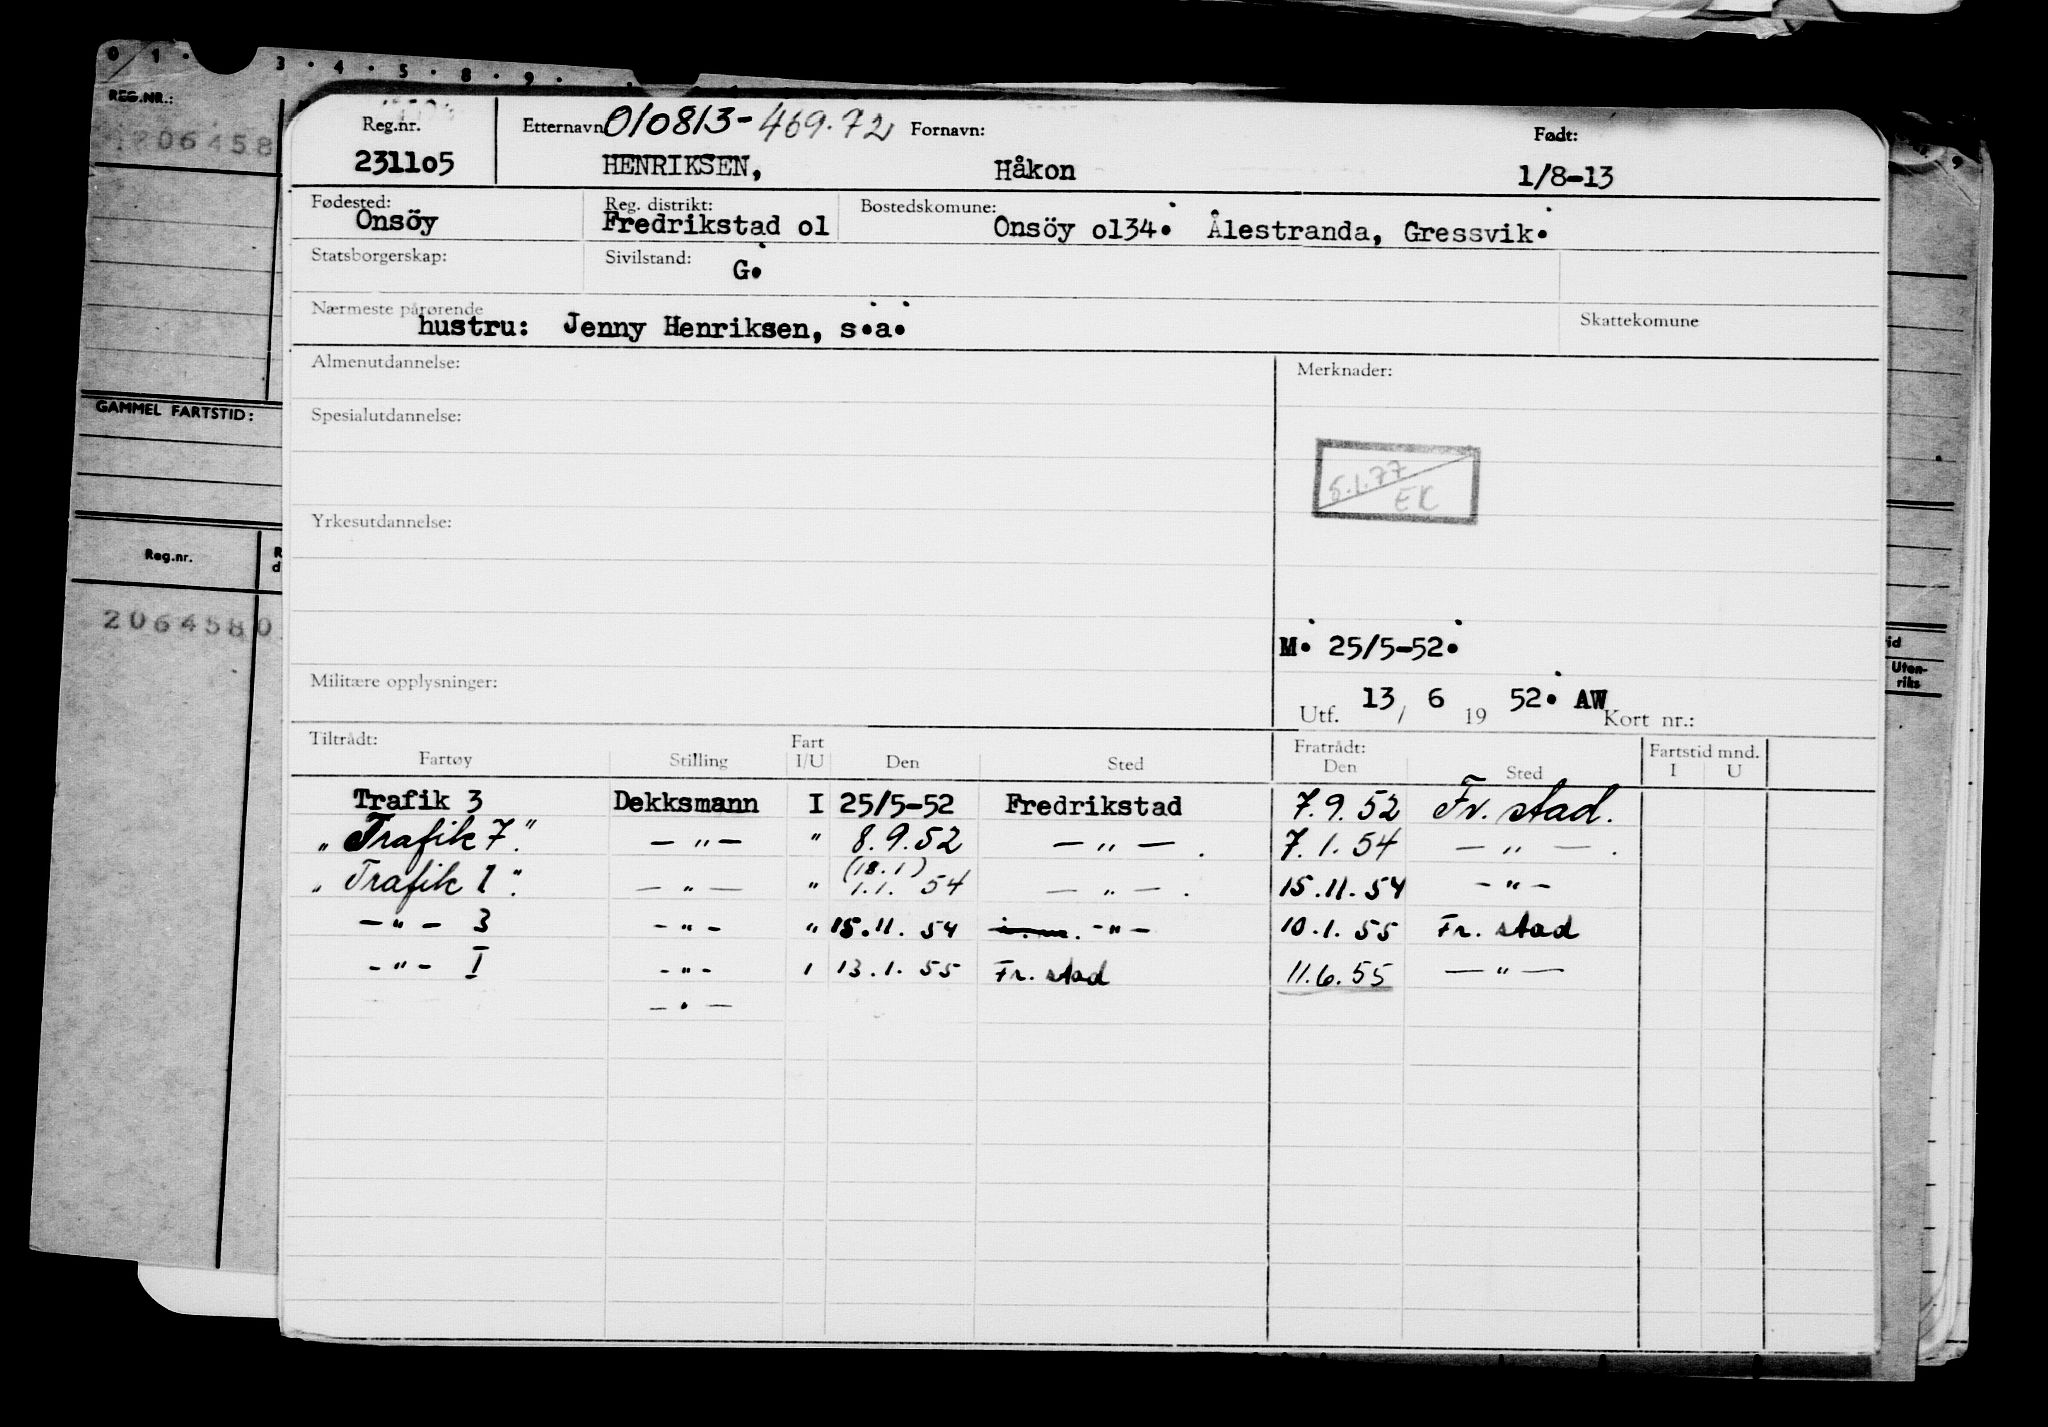 0 1 . 3 . 4 . 5 . 8 . 9 .
REG.NR.:
206458
GAMMEL FARTSTID:
Reg.nr.
206458 0
Uten-
riks
Reg.nr. Etternavn 010813-469.72 Fornavn: Født:
231105 HENRIKSEN, Håkon 1/8-13
Fødested: Reg. distrikt: Bostedskomune:
Onsöy Fredrikstad o1 Onsöy o134. Ålestranda, Gressvik.
Statsborgerskap: Sivilstand: G.
Nærmeste pårørende Skattekomune
hustru: Jenny Henriksen, s.a.
Almenutdannelse: Merknader:
Spesialutdannelse:
5.1.77
EK
Yrkesutdannelse:
M. 25/5-52.
Militære opplysninger:
Utf. 13 / 6 19 52. AW Kort nr.:
Tiltrådt: Fart Fratrådt: Fartstid mnd.
Fartøy Stilling I/U Den Sted Den Sted I U
Trafik 3 Dekksmann I 25/5-52 Fredrikstad 7.9.52 Fr. stad.
"Trafik 7". — " — " 8.9.52 — " — . 7.1.54 — " — .
(18.1)
"Trafik 1". — " — " 1.1. 54 — " — . 15.11.54 — " —
— " — 3 — " — " 15.11.54 — " — 10.1.55 Fr. stad
— " — I — " — ' 13.1.55 Fr. stad 11.6.55 — " —
— " —